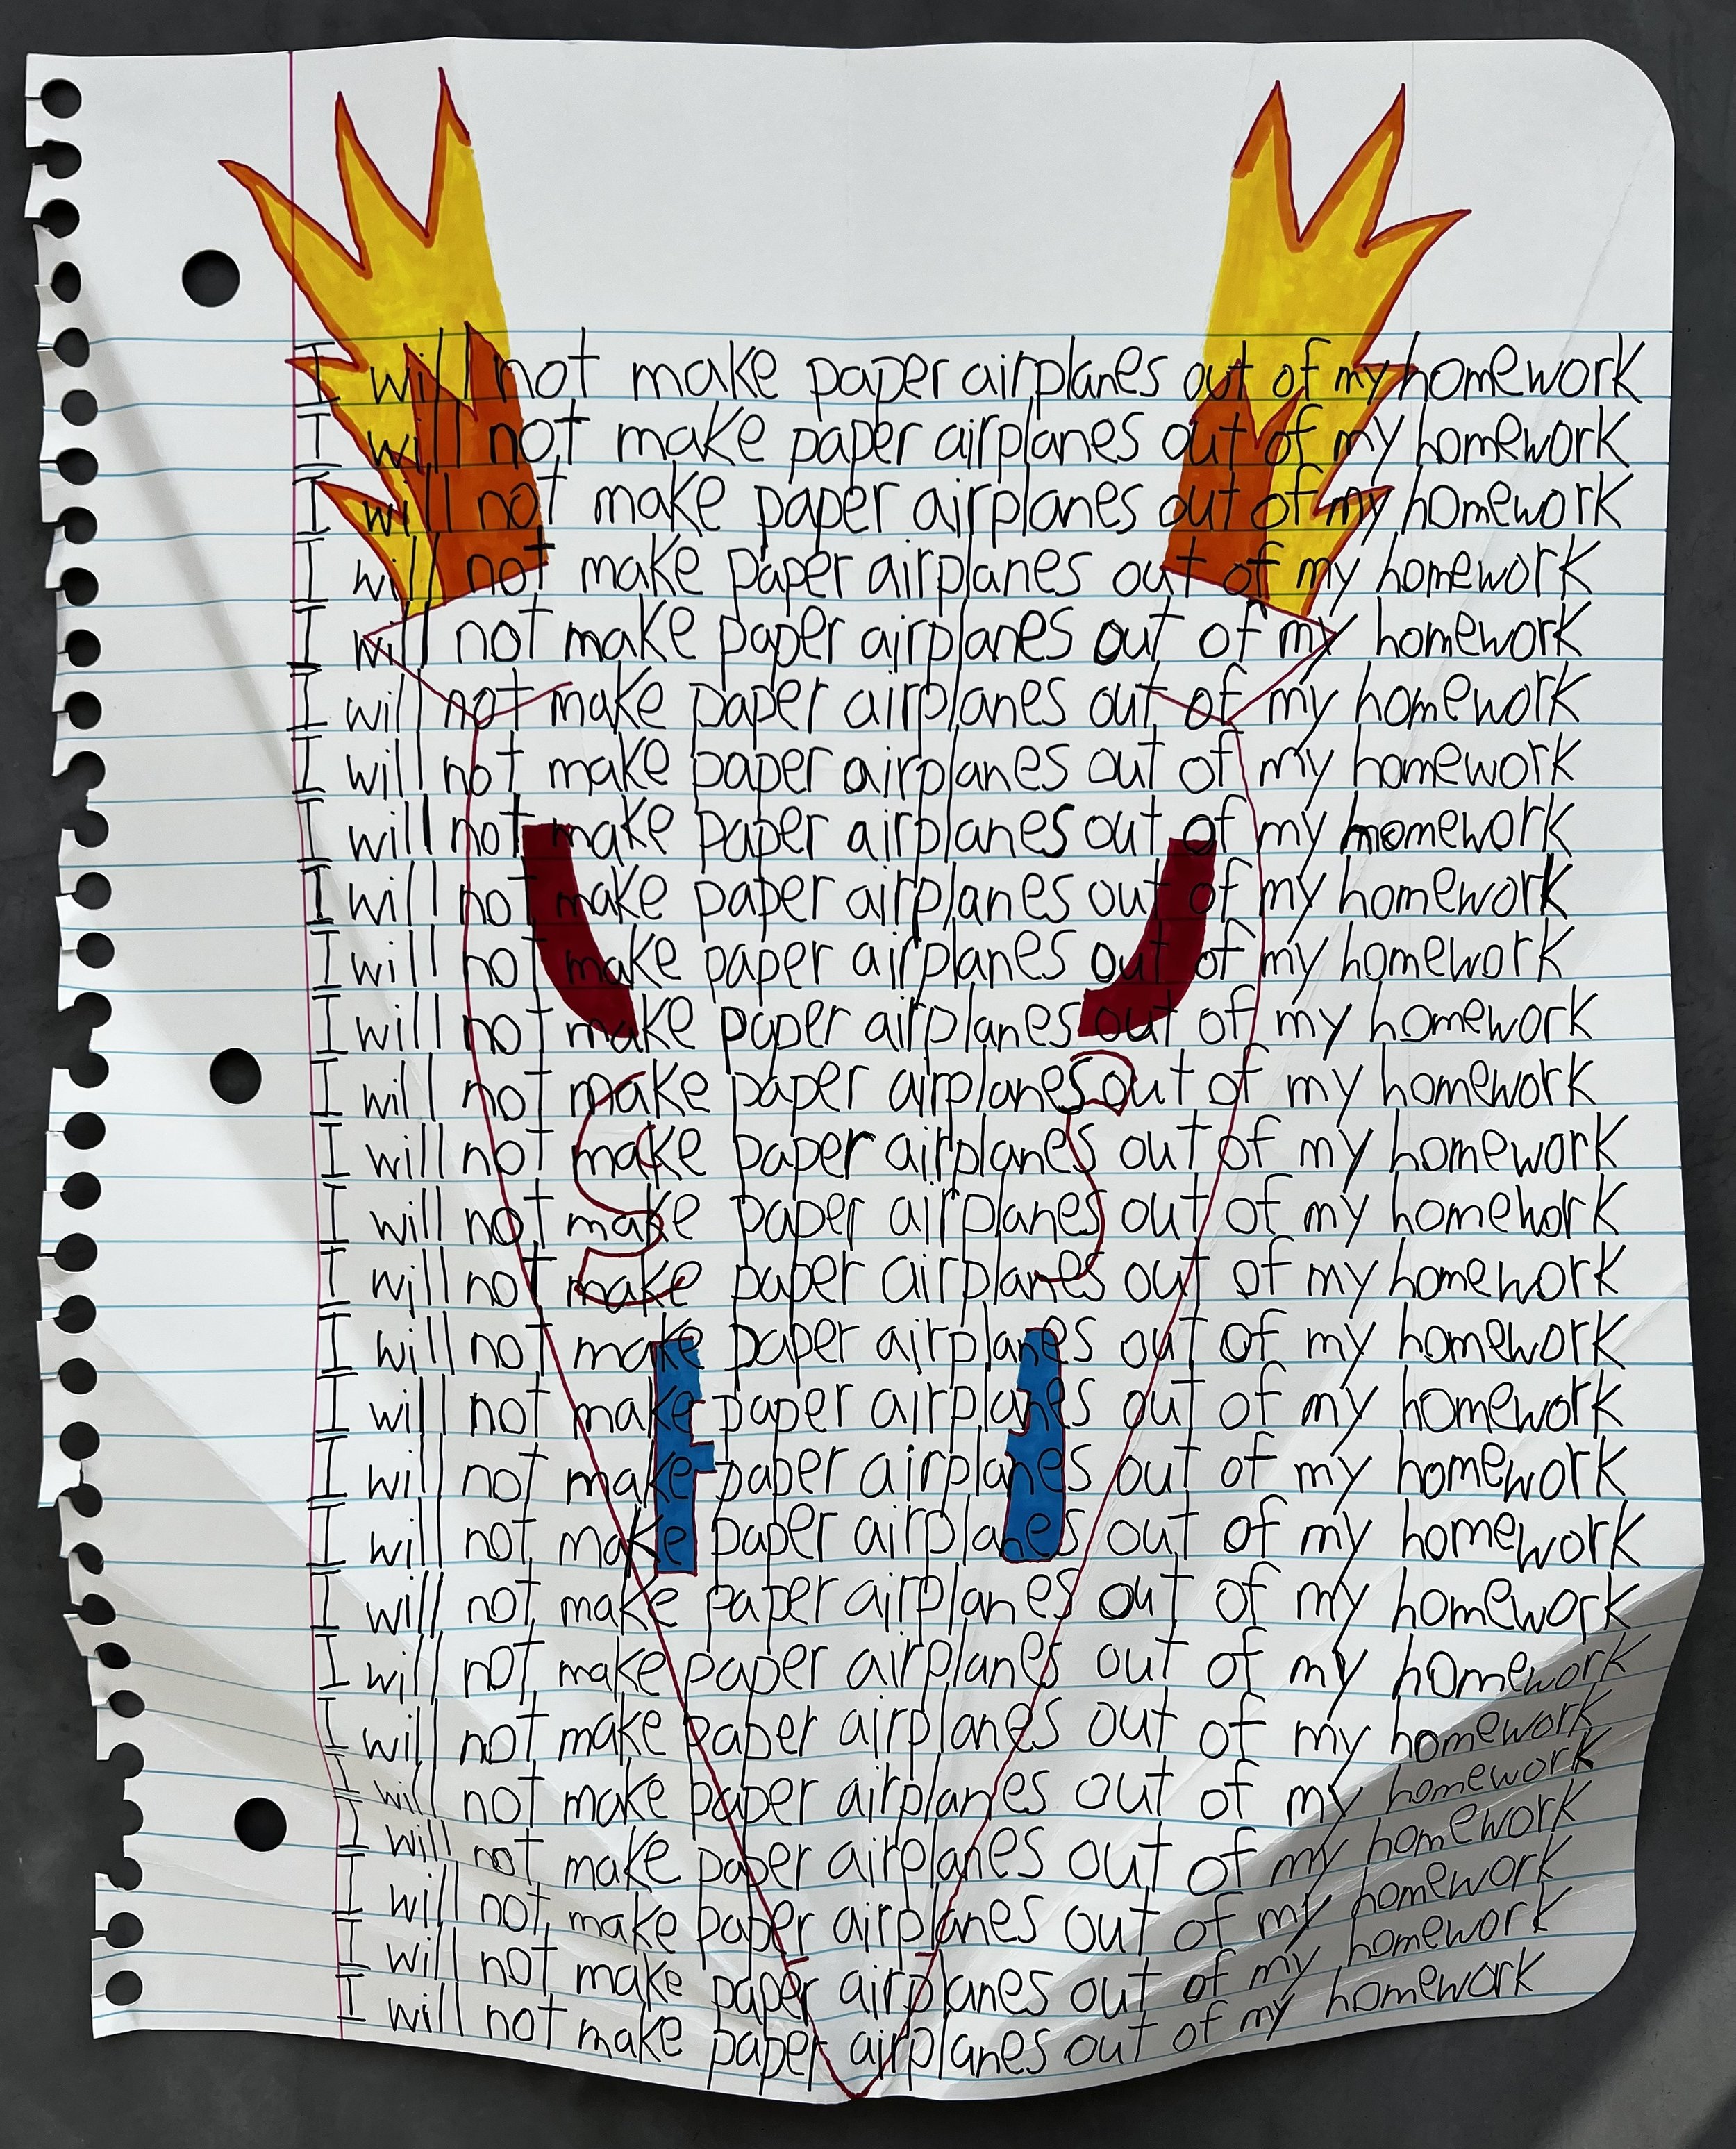 I will not make paper airplanes out of my homework
I will not make paper airplanes out of my homework
I will not make paper airplanes out of my homework
I will not make paper airplanes out of my homework
I will not make paper airplanes out of my homework
I will not make paper airplanes out of my homework
I will not make paper airplanes out of my homework
I will not make paper airplanes out of my homework
I will not make paper airplanes out of my homework
I will not make paper airplanes out of my homework
I will not make paper airplanes out of my homework
I will not make paper airplanes out of my homework
I will not make paper airplanes out of my homework
I will not make paper airplanes out of my homehork
I will not make paper airplanes out of my homework
I will not make paper airplanes out of my homework
I will not make paper airplanes out of my homework
I will not make paper airplanes out of my homework
I will not make paper airplanes out of my homework
I will not make paper airplanes out of my homework
I will not make paper airplanes out of my homework
I will not make paper airplanes out of my homework
I will not make paper airplanes out of my homework
I will not make paper airplanes out of my homework
I will not make paper airplanes out of my homework
I will not make paper airplanes out of my homework
I will not make paper airplanes out of my homework